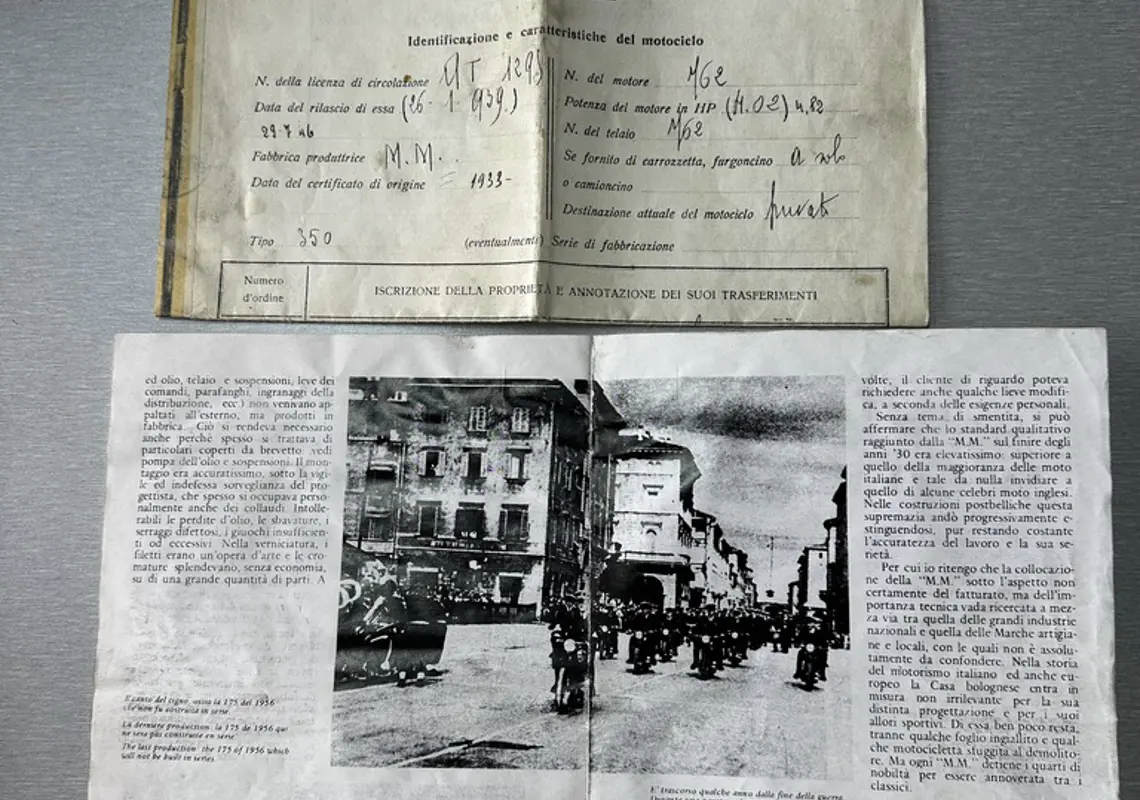 Identificazione e caratteristiche del motociclo
N. della licenza di circolazione
Data del rilascio di essa (26-1-939.)
29-7-46
Fabbrica produttrice M.M.
Data del certificato di origine = 1933-
Tipo 350
N. del motore M62
Potenza del motore in HP
N. del telaio M62
Se fornito di carrozzetta, furgoncino a solo
o camioncino
Destinazione attuale del motociclo privato
(eventualmente) Serie di fabbricazione
Numero
d'ordine
ISCRIZIONE DELLA PROPRIETÀ E ANNOTAZIONE DEI SUOI TRASFERIMENTI
ed olio, telaio e sospensioni, leve dei
comandi, parafanghi, ingranaggi della
distribuzione, ecc.) non venivano ap-
paltati all'esterno, ma prodotti in
fabbrica. Ciò si rendeva necessario
anche perché spesso si trattava di
particolari coperti da brevetto vedi
pompa dell'olio e sospensioni. Il mon-
taggio era accuratissimo, sotto la vigi-
le ed indefessa sorveglianza del pro-
gettista, che spesso si occupava perso-
nalmente anche dei collaudi. Intolle-
rabili le perdite d'olio, le sbavature, i
serraggi difettosi, i giuochi insufficien-
ti od eccessivi Nella verniciatura, i
filetti erano un'opera d'arte e le cro-
mature splendevano, senza economia,
su di una grande quantità di parti. A
Il canto del cigno, ossia la 175 del 1956
che non fu costruita in serie.
La dernière production: la 175 de 1956 qui
ne sera pas construite en série.
The last production: the 175 of 1956 which
will not be built in series.
volte, il cliente di riguardo poteva
richiedere anche qualche lieve modifi-
ca, a seconda delle esigenze personali.
Senza tema di smentita, si può
affermare che lo standard qualitativo
raggiunto dalla "M.M." sul finire degli
anni '30 era elevatissimo: superiore a
quello della maggioranza delle moto
italiane e tale da nulla invidiare a
quello di alcune celebri moto inglesi.
Nelle costruzioni postbelliche questa
supremazia andò progressivamente e-
stinguendosi, pur restando costante
l'accuratezza del lavoro e la sua se-
rietà.
Per cui io ritengo che la collocazio-
ne della "M.M." sotto l'aspetto non
certamente del fatturato, ma dell'im-
portanza tecnica vada ricercata a mez-
za via tra quella delle grandi industrie
nazionali e quella delle Marche artigia-
ne e locali, con le quali non è assolu-
tamente da confondere. Nella storia
del motorismo italiano ed anche eu-
ropeo la Casa bolognese entra in
misura non irrilevante per la sua
distinta progettazione e per i suoi
allori sportivi. Di essa ben poco resta,
tranne qualche foglio ingiallito e qual-
che motocicletta sfuggita al demolito-
re. Ma ogni "M.M." detiene i quarti di
nobiltà per essere annoverata tra i
classici.
E' trascorso qualche anno dalla fine della guerra